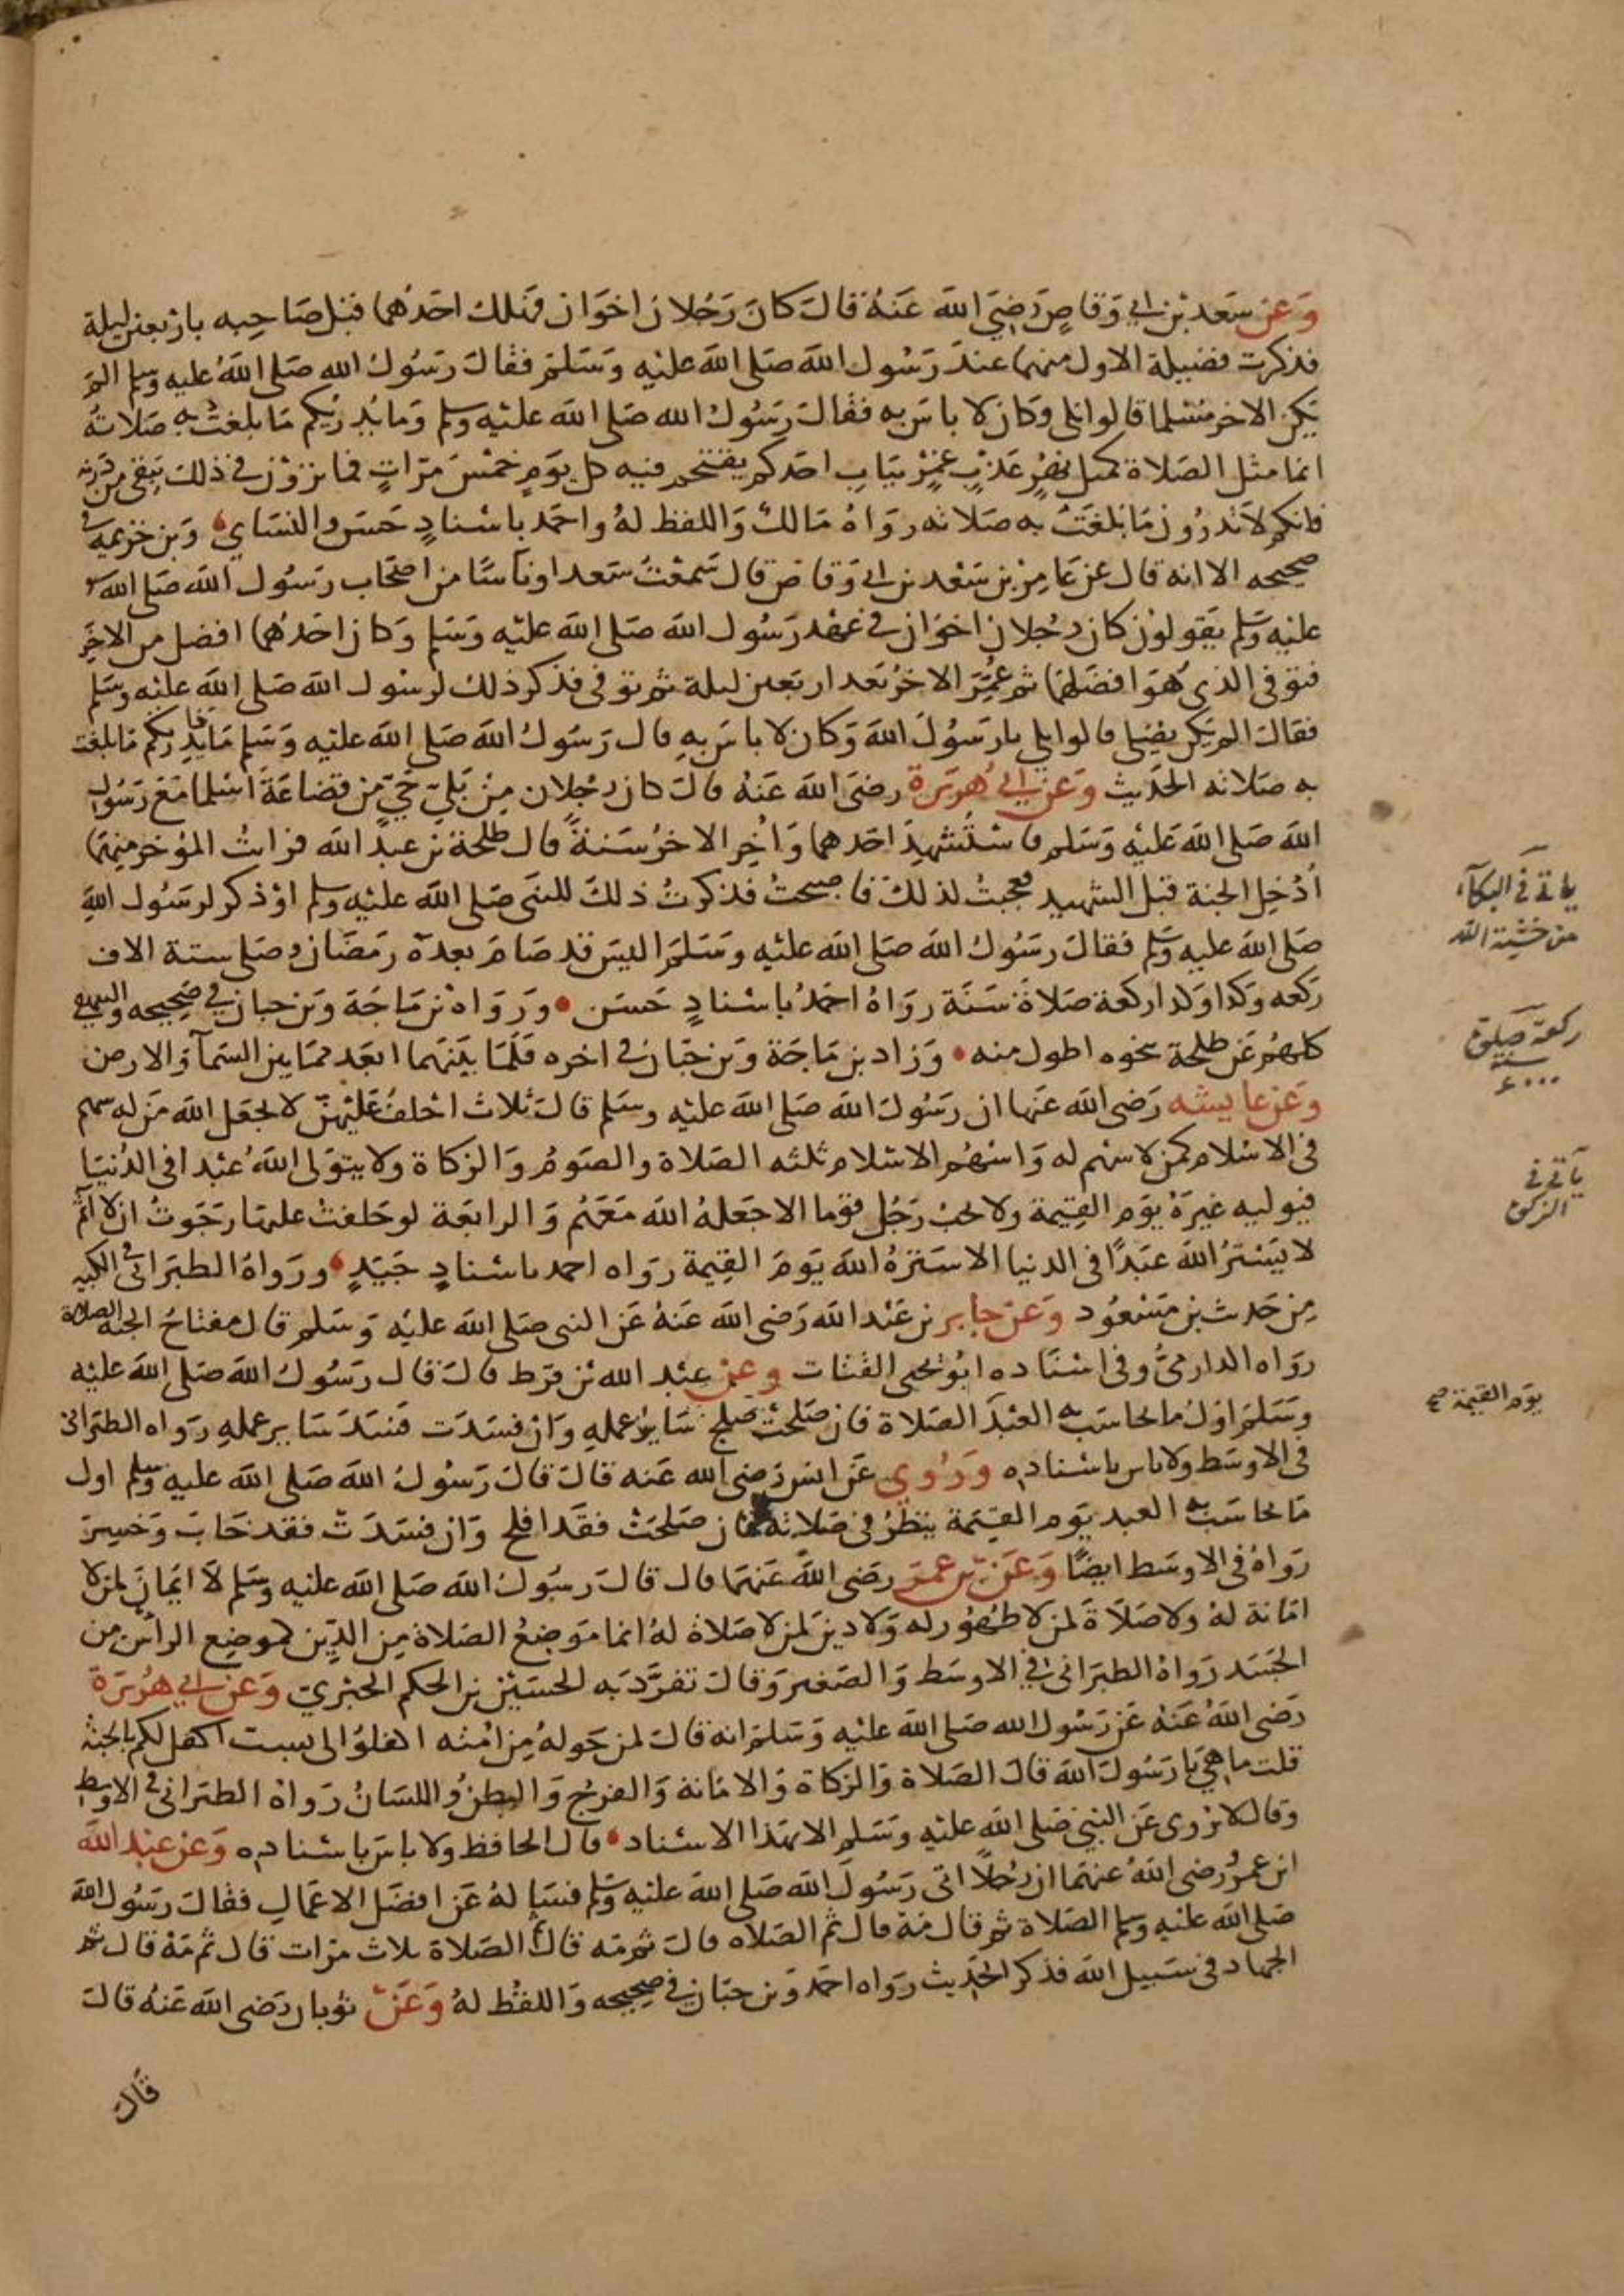 وعن سعد بن ابي وقاص رضي الله عنه قال كان رجلان اخوان فهلك احدهما قبل صاحبه باربعين ليلة
فذكرت فضيلة الاول منهما عند رسول الله صلى الله عليه وسلم فقال رسول الله صلى الله عليه وسلم الم
يكن الاخر مسلما قالوا بلى وكان لا باس به فقال رسول الله صلى الله عليه وسلم وما يدريكم ما بلغت به صلاته
انما مثل الصلاة كمثل نهر عذب غمر بباب احدكم يقتحم فيه كل يوم خمس مرات فما ترون في ذلك يبقي من درنه
فانكم لا تدرون ما بلغت به صلاته رواه مالك واللفظ له واحمد باسناد حسن والنساي وبن خزيمة في
صحيحه الا انه قال عن عامر بن سعد بن ابي وقاص قال سمعت سعدا وناسا من اصحاب رسول الله صلى الله
عليه وسلم يقولون كان رجلان اخوان في عهد رسول الله صلى الله عليه وسلم وكان احدهما افضل من الاخر
فتوفي الذي هو افضلهما ثم عمر الاخر بعد اربعين ليلة ثم توفي فذكر ذلك لرسول الله صلى الله عليه وسلم
فقال الم يكن يصلي قالوا بلى يا رسول الله وكان لا باس به قال رسول الله صلى الله عليه وسلم ما يدريكم ما بلغت
به صلاته الحديث وعن ابي هريرة رضي الله عنه قال كان رجلان من بلي حي من قضاعة اسلما مع رسول
الله صلى الله عليه وسلم فاستشهد احدهما واخر الاخر سنة قال طلحة بن عبد الله فرايت المؤخر منهما
ادخل الجنة قبل الشهيد فعجبت لذلك فاصبحت فذكرت ذلك للنبي صلى الله عليه وسلم او ذكر لرسول الله
صلى الله عليه وسلم فقال رسول الله صلى الله عليه وسلم اليس قد صام بعده رمضان وصلى ستة الاف
ركعه وكذا وكذا ركعة صلاة سنة رواه احمد باسناد حسن ورواه بن ماجة وبن حبان في صحيحه والبيهقي
كلهم عن طلحة بنحوه اطول منه وزاد بن ماجة وبن حبان في اخره فلما بينهما ابعد مما بين السمآ والارض
وعن عايشه رضي الله عنها ان رسول الله صلى الله عليه وسلم قال ثلاث احلف عليهن لا يجعل الله من له سهم
في الاسلام كمن لا سهم له واسهم الاسلام ثلثه الصلاة والصوم والزكاة ولا يتولى الله عبدا في الدنيا
فيوليه غيره يوم القيمة ولا يحب رجل قوما الا جعله الله معهم والرابعة لو حلفت عليها رجوت ان لا اثم
لا يستر الله عبدا في الدنيا الا ستره الله يوم القيمة رواه احمد باسناد جيد ورواه الطبراني في الكبير
من حديث بن مسعود وعن جابر بن عبد الله رضي الله عنه عن النبي صلى الله عليه وسلم قال مفتاح الجنة الصلاة
رواه الدارمي وفي اسناده ابو يحيى القتات وعن عبد الله بن قرط قال قال رسول الله صلى الله عليه
وسلم اول ما يحاسب به العبد الصلاة فان صلحت صلح ساير عمله وان فسدت فسد ساير عمله رواه الطبراني
في الاوسط ولا باس باسناده وروي عن انس رضي الله عنه قال قال رسول الله صلى الله عليه وسلم اول
ما يحاسب به العبد يوم القيمة ينظر في صلاته فان صلحت فقد افلح وان فسدت فقد خاب وخسر
رواه في الاوسط ايضا وعن بن عمر رضي الله عنهما قال قال رسول الله صلى الله عليه وسلم لا ايمان لمن لا
امانة له ولا صلاة لمن لا طهور له ولا دين لمن لا صلاة له انما موضع الصلاة من الدين كموضع الراس من
الجسد رواه الطبراني في الاوسط والصغير وقال تفرد به الحسين بن الحكم الحبري وعن ابي هريرة
رضي الله عنه عن رسول الله صلى الله عليه وسلم انه قال لمن حوله من امته اكفلوا لي بست اكفل لكم بالجنة
قلت ما هي يا رسول الله قال الصلاة والزكاة والامانة والفرج والبطن واللسان رواه الطبراني في الاوسط
وقال لا يروى عن النبي صلى الله عليه وسلم الا بهذا الاسناد قال الحافظ ولا باس باسناده وعن عبد الله
ابن عمرو رضي الله عنهما ان رجلا اتى رسول الله صلى الله عليه وسلم فساله عن افضل الاعمال فقال رسول الله
صلى الله عليه وسلم الصلاة ثم قال مه قال ثم الصلاه قال ثم مه قال الصلاة ثلاث مرات قال ثم مه قال ثم
الجهاد في سبيل الله فذكر الحديث رواه احمد وبن حبان في صحيحه واللفظ له وعن ثوبان رضي الله عنه قال
قال
ياتي في البكآء
من خشية الله
ركعة صلوة
سنة
ياتي في
الزكوة
يوم القيمة صح